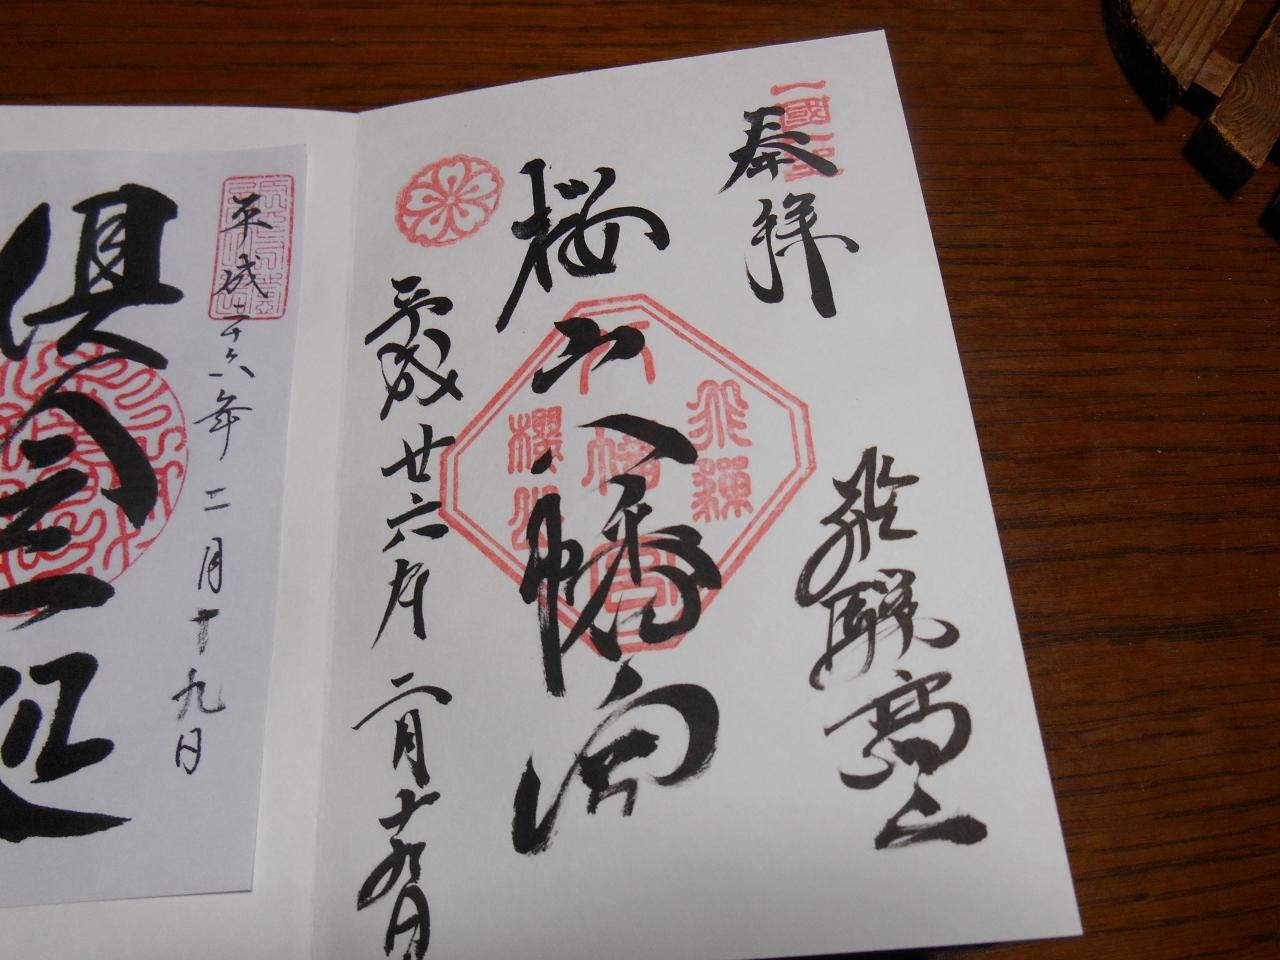 奉拝
飛騨高山
一國一宮
桜山八幡宮
飛騨
八幡宮
櫻山
平成廿六年二月十九日
平成二十六年二月十九日
倶会一処